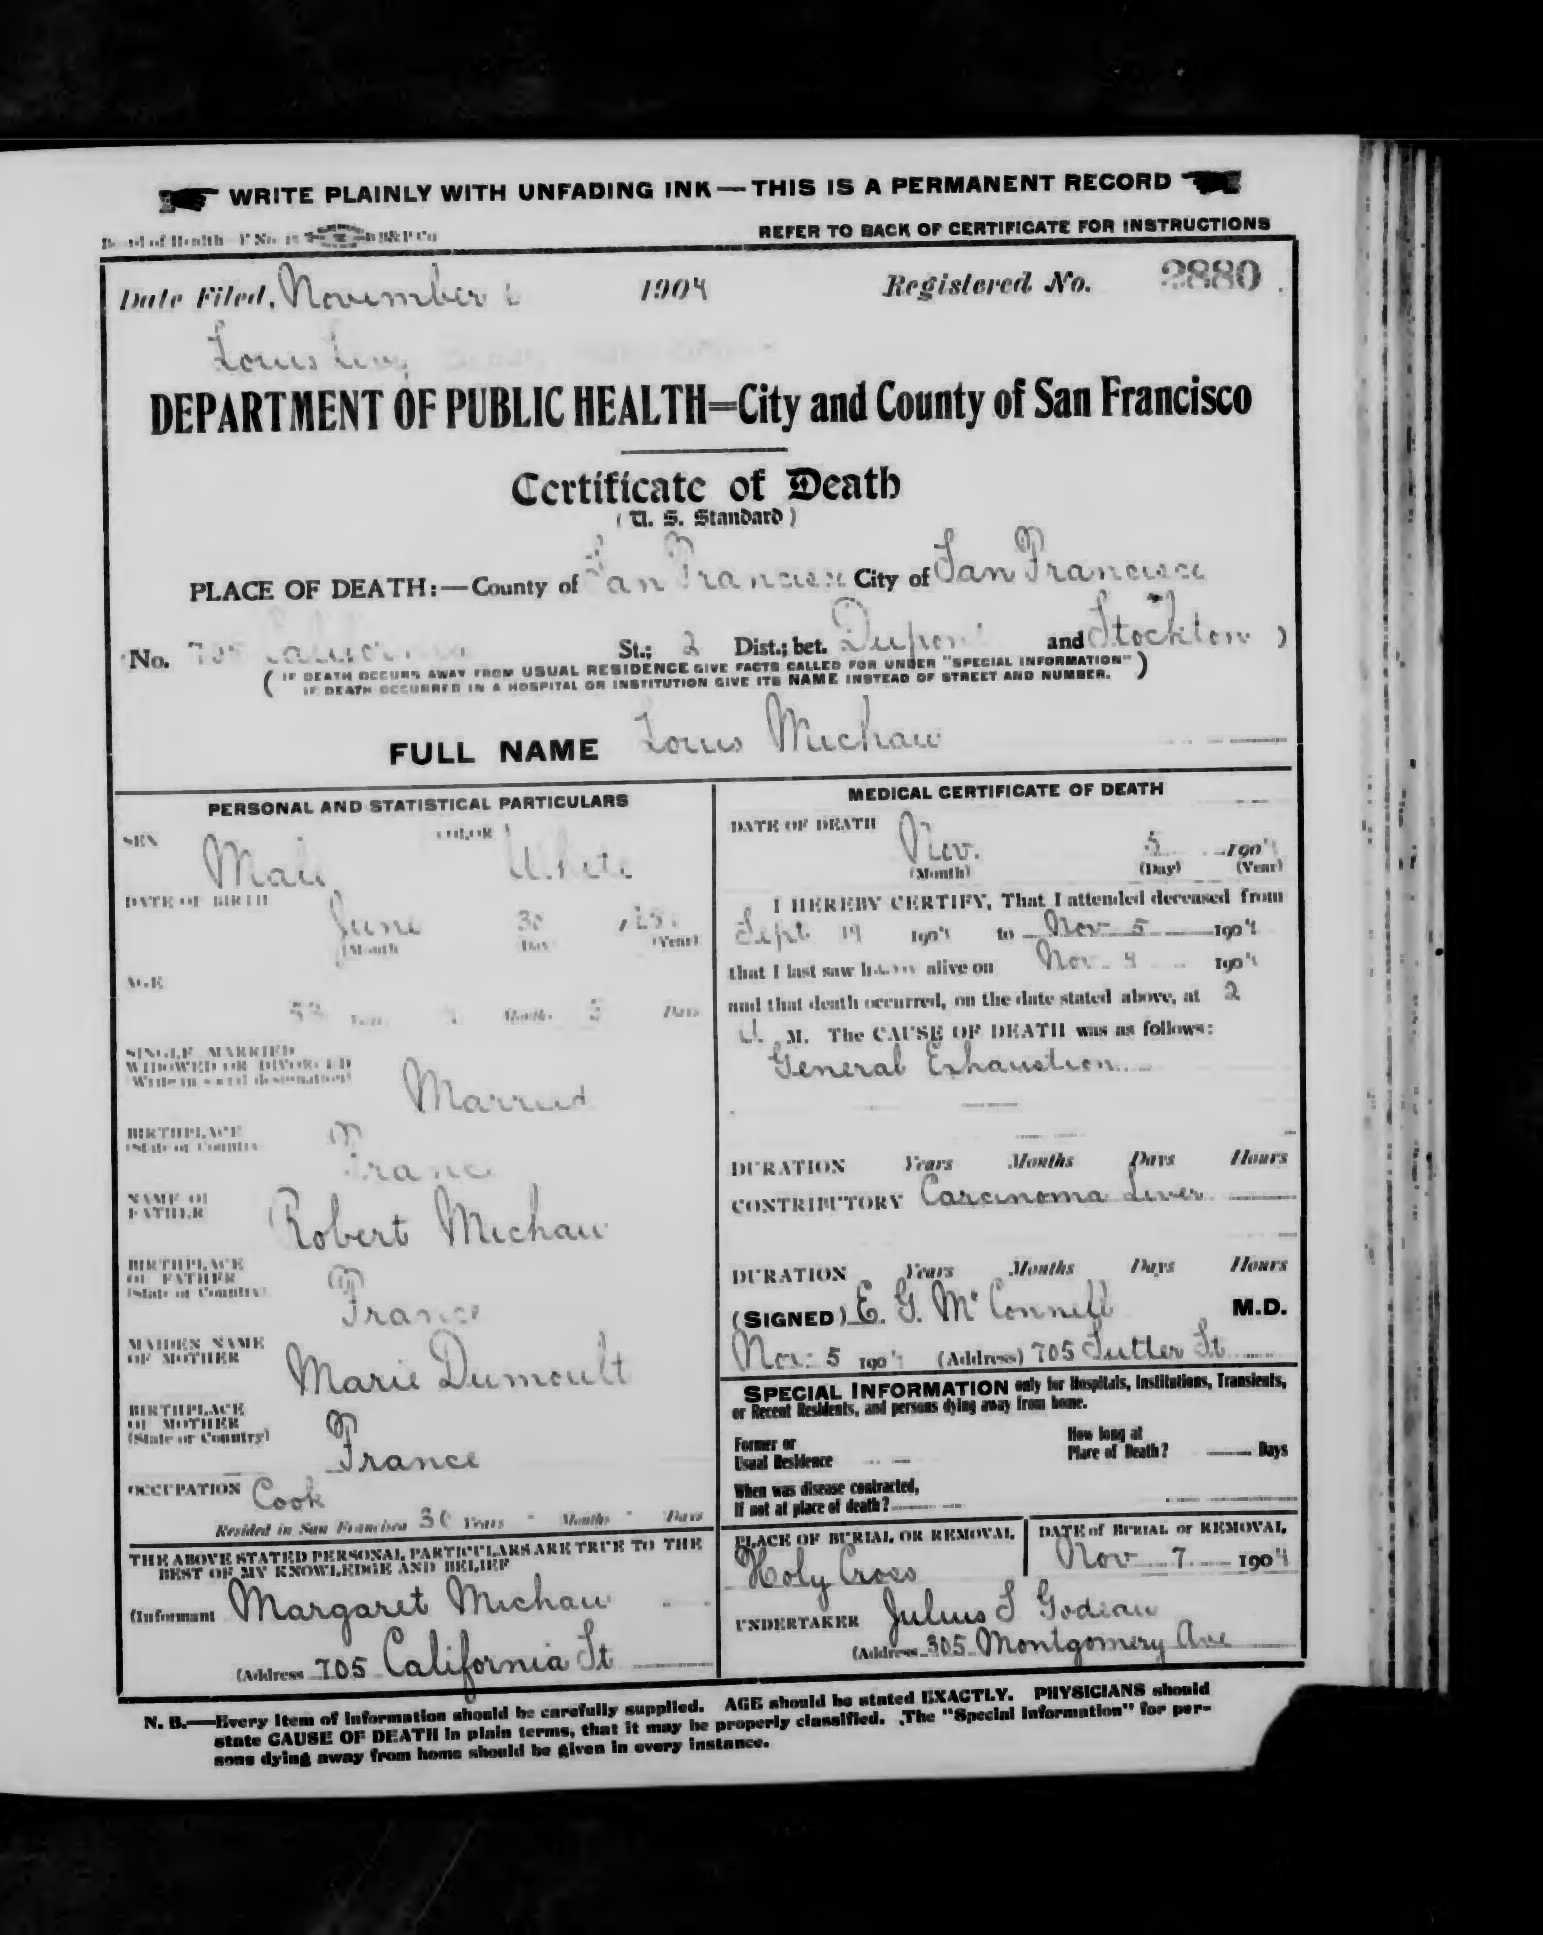 WRITE PLAINLY WITH UNFADING INK—THIS IS A PERMANENT RECORD
Board of Health B&P Co
REFER TO BACK OF CERTIFICATE FOR INSTRUCTIONS
Date Filed, November 1904 Registered No. 2880
Louis Levy
DEPARTMENT OF PUBLIC HEALTH=City and County of San Francisco
Certificate of Death
(U. S. Standard)
PLACE OF DEATH:—County of San Francisco City of San Francisco
No. 705 California St.; 2 Dist.; bet. Dupont and Stockton )
( IF DEATH OCCURS AWAY FROM USUAL RESIDENCE GIVE FACTS CALLED FOR UNDER "SPECIAL INFORMATION" )
IF DEATH OCCURRED IN A HOSPITAL OR INSTITUTION GIVE ITS NAME INSTEAD OF STREET AND NUMBER.
FULL NAME Louis Michaw
PERSONAL AND STATISTICAL PARTICULARS
SEX COLOR
Male White
DATE OF BIRTH
June 30
(Month) (Day) (Year)
AGE
53 Years 4 Months 5 Days
SINGLE, MARRIED
WIDOWED OR DIVORCED
(Write in social designation)
Married
BIRTHPLACE
(State or Country)
France
NAME OF
FATHER
Robert Michaw
BIRTHPLACE
OF FATHER
(State or Country)
France
MAIDEN NAME
OF MOTHER
Marie Dumoult
BIRTHPLACE
OF MOTHER
(State or Country)
France
OCCUPATION Cook
Resided in San Francisco 30 Years - Months - Days
THE ABOVE STATED PERSONAL PARTICULARS ARE TRUE TO THE
BEST OF MY KNOWLEDGE AND BELIEF
(Informant Margaret Michaw
(Address 705 California St
MEDICAL CERTIFICATE OF DEATH
DATE OF DEATH
Nov. 5 1904
(Month) (Day) (Year)
I HEREBY CERTIFY, That I attended deceased from
Sept 19 1904 to Nov 5 1904
that I last saw him alive on Nov. 4 1904
and that death occurred, on the date stated above, at 2
A. M. The CAUSE OF DEATH was as follows:
General Exhaustion
DURATION Years Months Days Hours
CONTRIBUTORY Carcinoma Liver
DURATION Years Months Days Hours
(SIGNED) E. G. McConnell M.D.
Nov. 5 1904 (Address) 705 Sutter St
SPECIAL INFORMATION only for Hospitals, Institutions, Transients,
or Recent Residents, and persons dying away from home.
Former or
Usual Residence
How long at
Place of Death? Days
When was disease contracted,
If not at place of death?
PLACE OF BURIAL OR REMOVAL
Holy Cross
DATE of BURIAL or REMOVAL
Nov 7 1904
UNDERTAKER Julius S Godeau
(Address 305 Montgomery Ave
N. B.—Every item of information should be carefully supplied. AGE should be stated EXACTLY. PHYSICIANS should
state CAUSE OF DEATH in plain terms, that it may be properly classified. The "Special Information" for per-
sons dying away from home should be given in every instance.